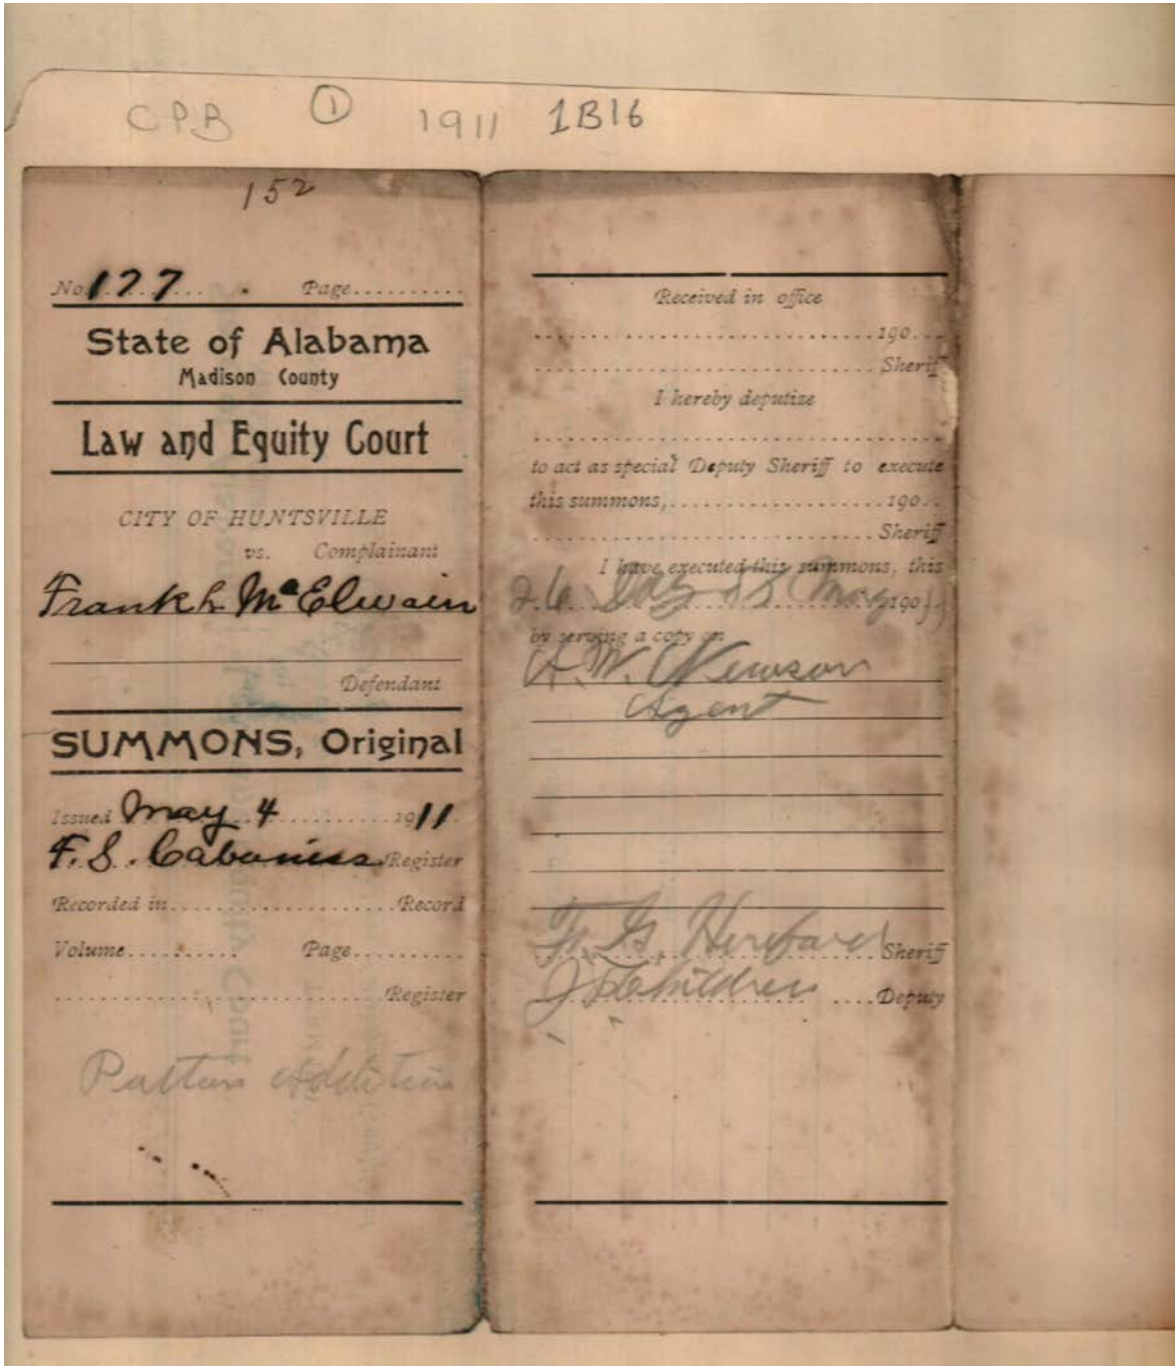 CPB ① 1911 1B16
152
No 177 . Page..........
State of Alabama
Madison County
Law and Equity Court
CITY OF HUNTSVILLE
vs. Complainant
Frank L McElwain
Defendant
SUMMONS, Original
Issued May 4 .......... 1911
F. S. Cabaniss Register
Recorded in.....................Record
Volume........... Page..........
.............................. Register
Patton Addition
Received in office
..............................190...
.............................. Sheriff
I hereby deputize
....................................
to act as special Deputy Sheriff to execute
this summons,...................190..
.............................. Sheriff
I have executed this summons, this
26 day of May 190
by serving a copy on
A. W. Newson
Agent
Sheriff
J Childress .... Deputy